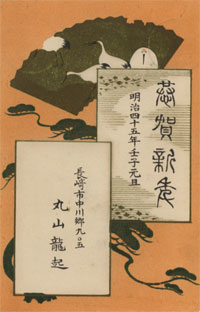 恭賀新年
明治四十五年壬子元旦
長崎市中川郷九〇五
丸山龍起